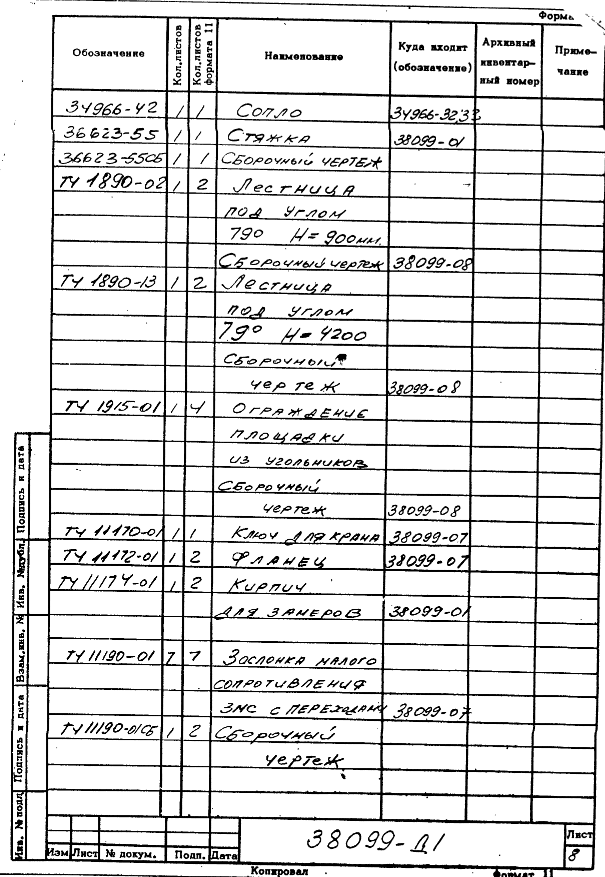 Форма
Обозначение Кол.листов Кол.листов формата 11 Наименование Куда входит (обозначение) Архивный инвентар- ный номер Приме- чание
34966-42 1 1 Сопло
36623-55 1 1 Стяжка 38099-01
36623-55СБ 1 1 Сборочный чертеж
ТЧ 1890-02 1 2 Лестница
под углом
79° H=900мм.
Сборочный чертеж 38099-08
ТЧ 1890-13 1 2 Лестница
под углом
79° H=4200
Сборочный
чертеж 38099-08
ТЧ 1915-01 1 4 Ограждение
площадки
из угольников
Сборочный
чертеж 38099-08
ТЧ 11170-01 1 1 Ключ для крана 38099-07
ТЧ 11172-01 1 2 Фланец 38099-07
ТЧ 11174-01 1 2 Кирпич
для замеров 38099-01
ТЧ 11190-01 7 7 Заслонка малого
сопротивления
ЗМС с переходами 38099-07
ТЧ 11190-01СБ 1 2 Сборочный
чертеж
Подпись и дата
Инв. № дубл.
Взам.инв. №
Подпись и дата
Инв. № подл
38099-Д1
Лист
8
Изм Лист № докум. Подп. Дата
Копировал Формат 11